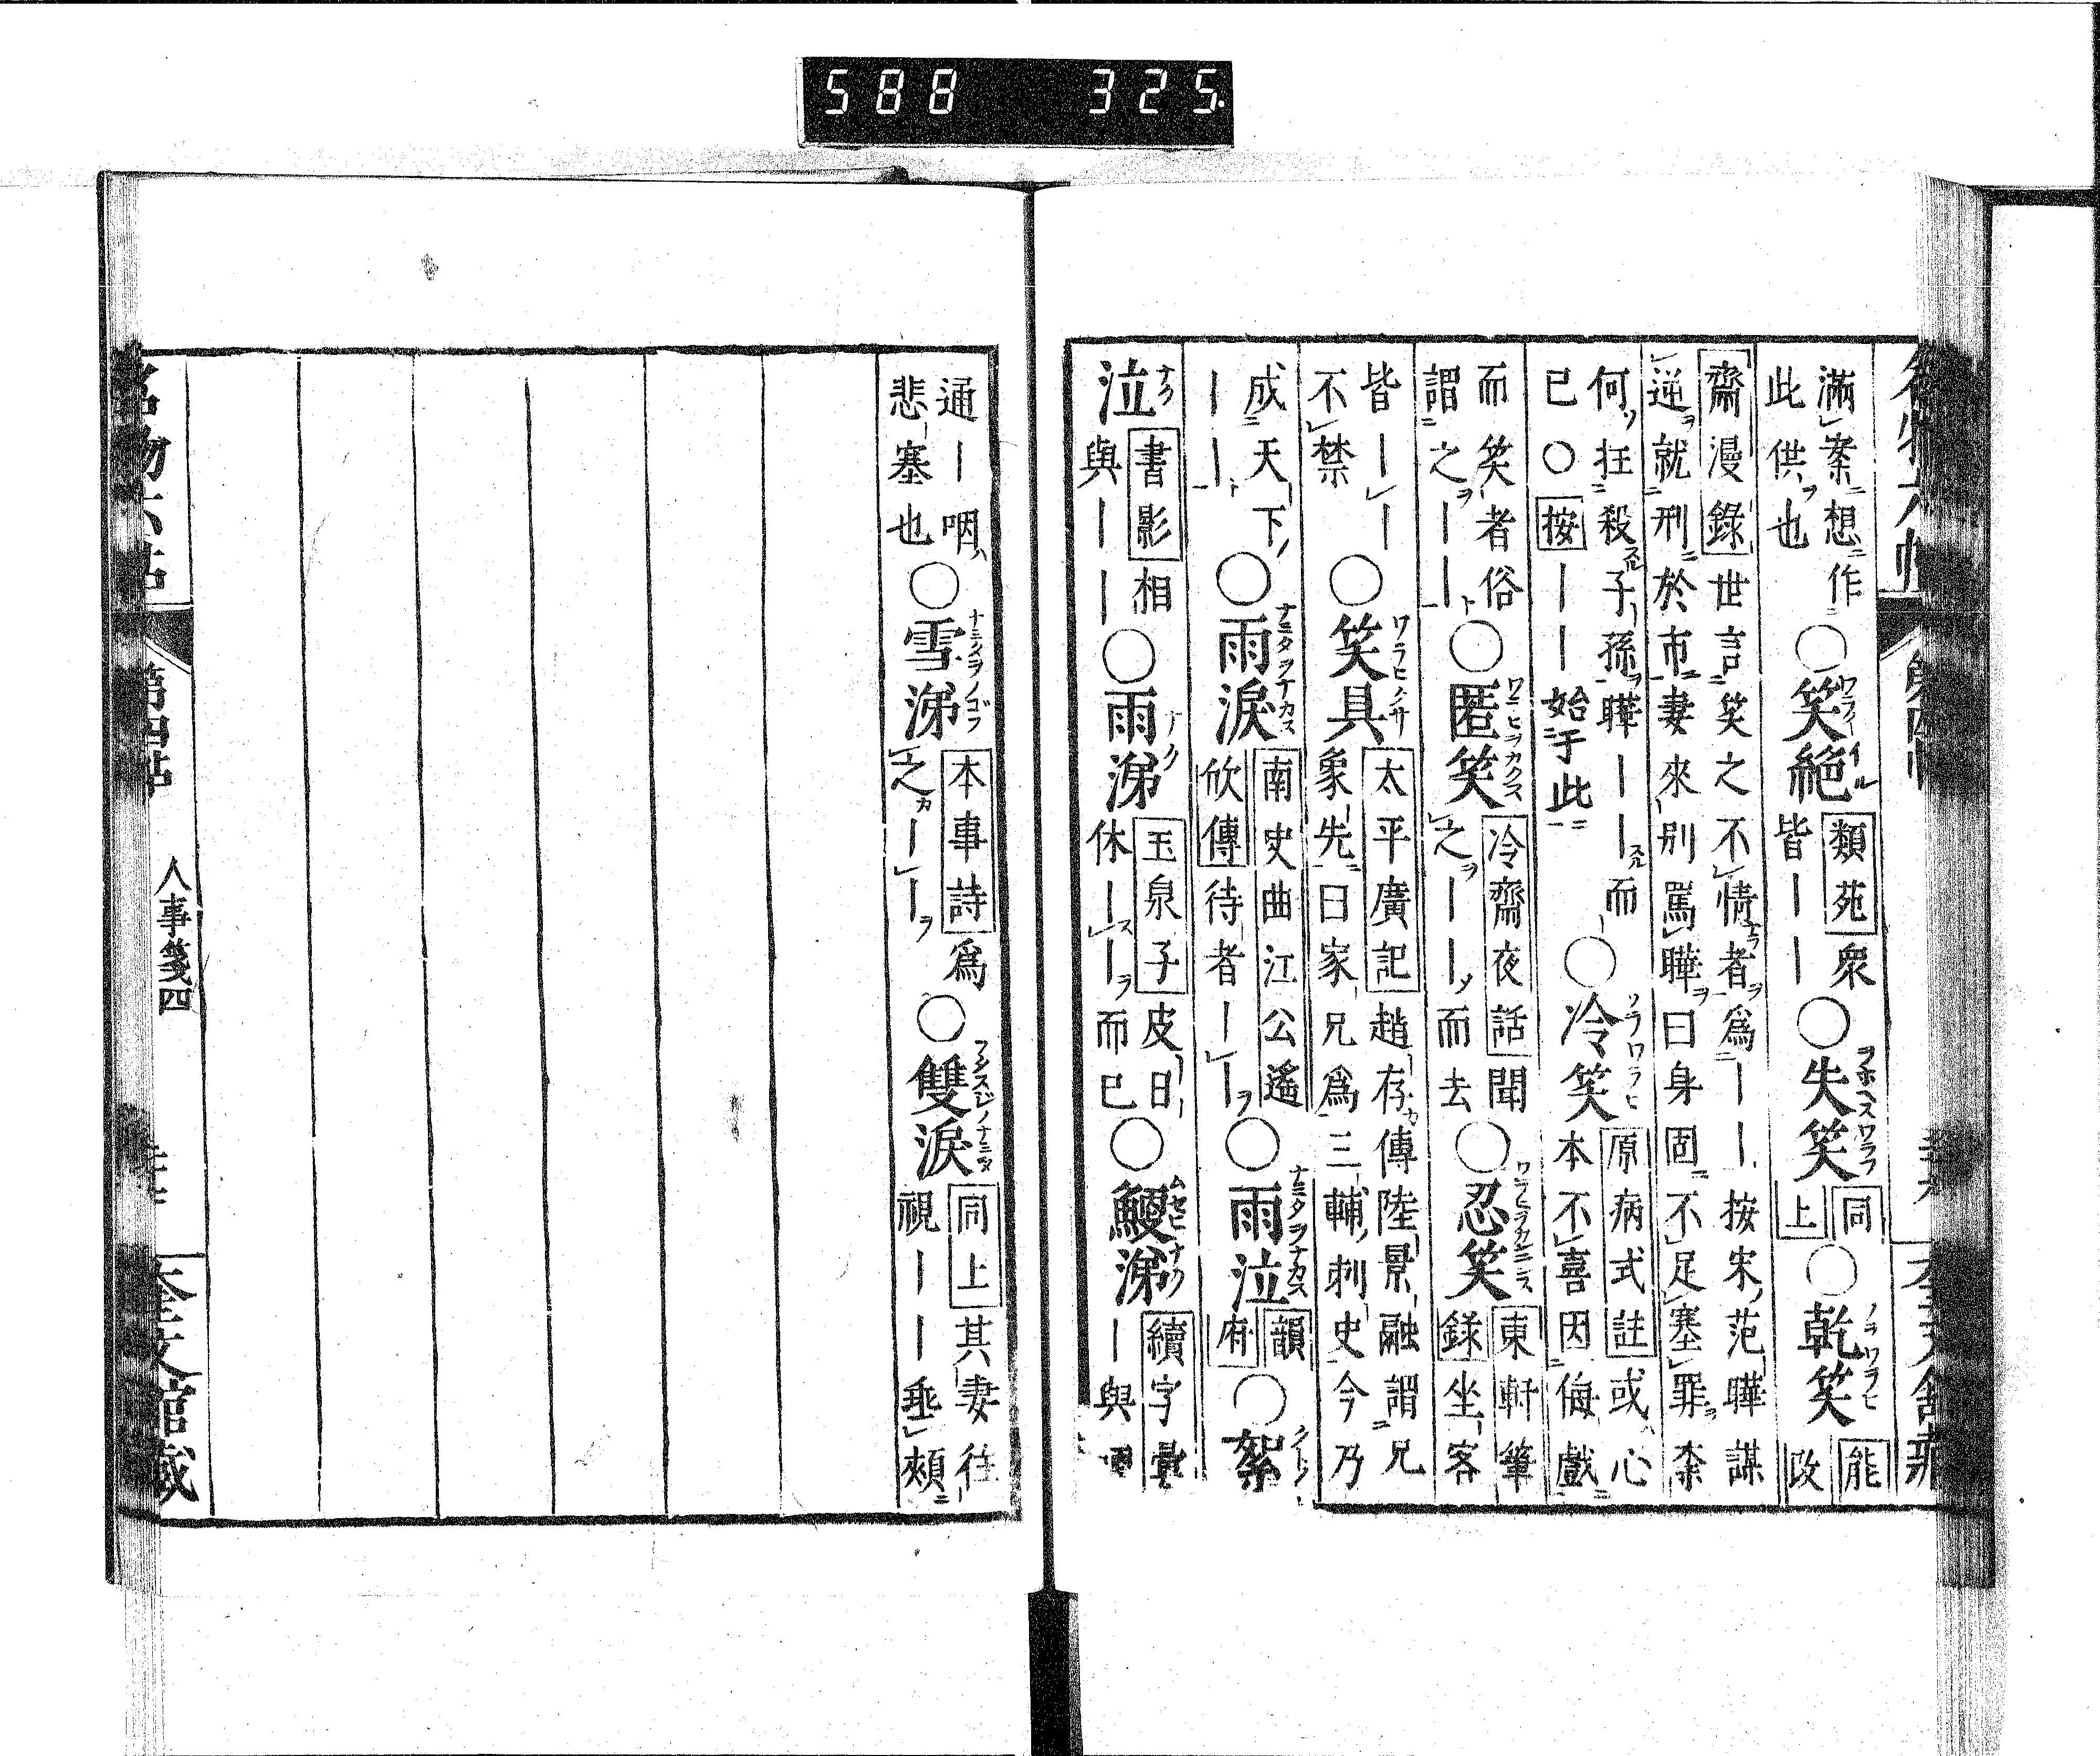 588 325.
滿案想作
此供也
○笑絕
類苑衆
皆｜｜
○失笑
同
上
○乾笑
能
改
齋漫錄世言笑之不情者爲｜｜按宋范曄謀
逆就刑於市妻來別罵曄曰身固不足塞罪柰
何狂殺子孫曄｜｜而
已○按｜｜始于此
○冷笑
原病式註或心
本不喜因侮戲
而笑者俗
謂之｜｜
○匿笑
冷齋夜話聞
之｜｜而去
○忍笑
東軒筆
錄坐客
皆｜｜
不禁
○笑具
太平廣記趙存傳陸景融謂兄
象先曰家兄爲三輔刺史今乃
成天下
｜｜
○雨淚
南史曲江公遙
欣傳待者｜｜
○雨泣
韻
府
○絮
泣
書影相
與｜｜
○雨涕
玉泉子皮日
休｜｜而已
○鯁涕
續字彙
｜與
通｜咽
悲塞也
○雪涕
本事詩爲
之｜｜
○雙淚
同上其妻往
視｜｜垂頰
名物六帖
第四帖
人事箋四
奎文館藏